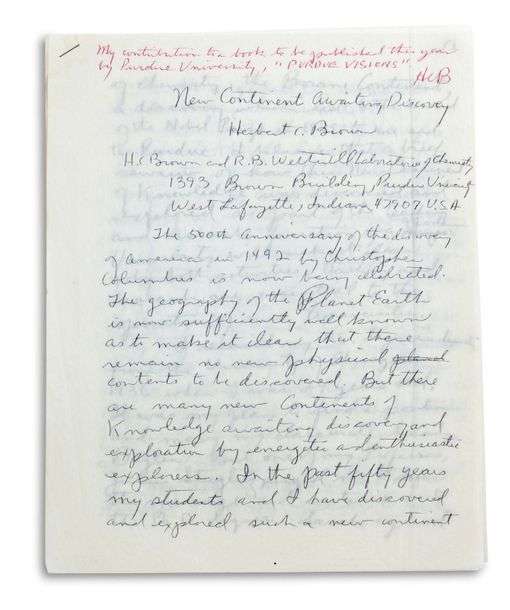 My contribution to a book to be published this year
by Purdue University, "PURDUE VISIONS".
HCB
New Continent Awaiting Discovery
Herbert C. Brown
H.C. Brown and R.B. Wetherill Laboratories of Chemistry
1393 Brown Building, Purdue University
West Lafayette, Indiana 47907 U.S.A
The 500th anniversary of the discovery
of America in 1492 by Christopher
Columbus is now being celebrated.
The geography of the Planet Earth
is now sufficiently well known
as to make it clear that there
remain no new physical
contents to be discovered. But there
are many new Continents of
Knowledge awaiting discovery and
exploration by energetic and enthusiastic
explorers. In the past fifty years
my students and I have discovered
and explored such a new continent